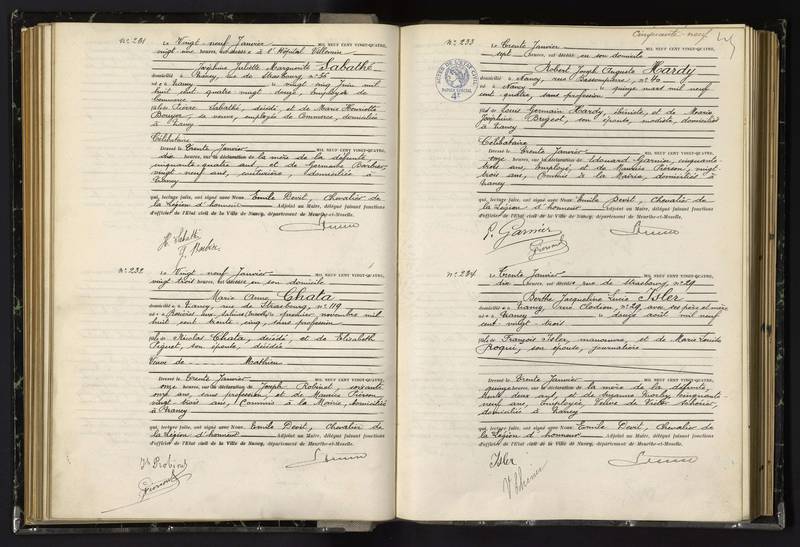 No. 231
Le Vingt neuf Janvier MIL NEUF CENT VINGT-QUATRE,
vingt une heures, est décédée à l'Hôpital Villemin
Joséphine Juliette Marguerite Sabathé
domiciliée à Nancy, rue de Strasbourg, n° 35
née à Nancy le vingt cinq Juin mil
huit cent quatre vingt douze, Employée de
Commerce
fille de Pierre Sabathé, décédé et de Marie Henriette
Bouyer, sa veuve, employée de Commerce, domiciliée
à Nancy
Célibataire
Dressé le Trente Janvier MIL NEUF CENT VINGT-QUATRE,
dix heures, sur la déclaration de la mère de la défunte,
cinquante quatre ans, et de Germaine Barbier,
vingt neuf ans, couturière, domiciliées à
Nancy
qui, lecture faite, ont signé avec Nous, Emile Devit, Chevalier de
la Légion d'honneur Adjoint au Maire, délégué faisant fonctions
d'officier de l'Etat civil de la Ville de Nancy, département de Meurthe-et-Moselle.
No. 232
Le Vingt neuf Janvier MIL NEUF CENT VINGT-QUATRE,
vingt trois heures, est décédée en son domicile
Marie Anne Chata
domiciliée à Nancy, rue de Strasbourg, n° 119
née à Rosières aux Salines le premier novembre mil
huit cent trente cinq, sans profession
fille de Nicolas Chata, décédé, et de Elisabeth
son épouse, décédée
Veuve de Mathieu
Dressé le Trente Janvier MIL NEUF CENT VINGT-QUATRE,
onze heures, sur la déclaration de Joseph Robinet, soixante
onze ans, sans profession, et de Maurice Pierson,
vingt trois ans, Commis à la Mairie, domiciliés
à Nancy
qui, lecture faite, ont signé avec Nous, Emile Devit, Chevalier de
la Légion d'honneur Adjoint au Maire, délégué faisant fonctions
d'officier de l'Etat civil de la Ville de Nancy, département de Meurthe-et-Moselle.
Cinquante neuf
No. 233
Le Trente Janvier MIL NEUF CENT VINGT-QUATRE,
sept heures, est décédé en son domicile
Robert Joseph Auguste Hardy
domicilié à Nancy, rue
né à Nancy le quinze mars mil neuf
cent quatre, sans profession
fils de Louis Germain Hardy, ébéniste, et de Marie
Joséphine Brigeot, son épouse, modiste, domiciliés
à Nancy
Célibataire
Dressé le Trente Janvier MIL NEUF CENT VINGT-QUATRE,
onze heures, sur la déclaration de Edouard Garnier, cinquante
trois ans, Employé, et de Maurice Pierson, vingt
trois ans, Commis à la Mairie, domiciliés à
Nancy
qui, lecture faite, ont signé avec Nous, Emile Devit, Chevalier de
la Légion d'honneur Adjoint au Maire, délégué faisant fonctions
d'officier de l'Etat civil de la Ville de Nancy, département de Meurthe-et-Moselle.
Garnier
No. 234
Le Trente Janvier MIL NEUF CENT VINGT-QUATRE,
dix heures, est décédée rue de Strasbourg, n° 29
Berthe Jacqueline Lucie Isler
domiciliée à Nancy, n° 29, avec ses père et mère
née à Nancy le douze août mil neuf
cent vingt trois
fille de François Isler, manœuvre, et de Marie Louise
son épouse, journalière
Dressé le Trente Janvier MIL NEUF CENT VINGT-QUATRE,
quinze heures, sur la déclaration de la mère de la défunte,
trente deux ans, et de Suzanne cinquante
neuf ans, Employée, Veuve de Victor
domiciliées à Nancy
qui, lecture faite, ont signé avec Nous, Emile Devit, Chevalier de
la Légion d'honneur Adjoint au Maire, délégué faisant fonctions
d'officier de l'Etat civil de la Ville de Nancy, département de Meurthe-et-Moselle.
Isler